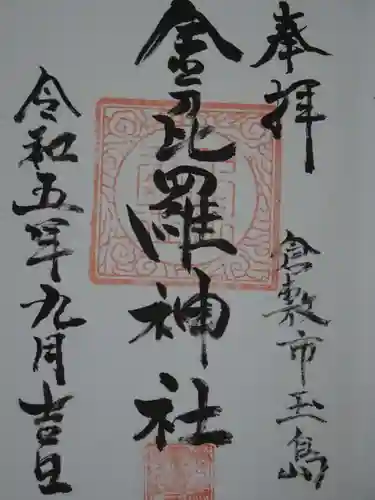 奉拝
倉敷市玉島
金毘羅神社
令和五年九月吉日